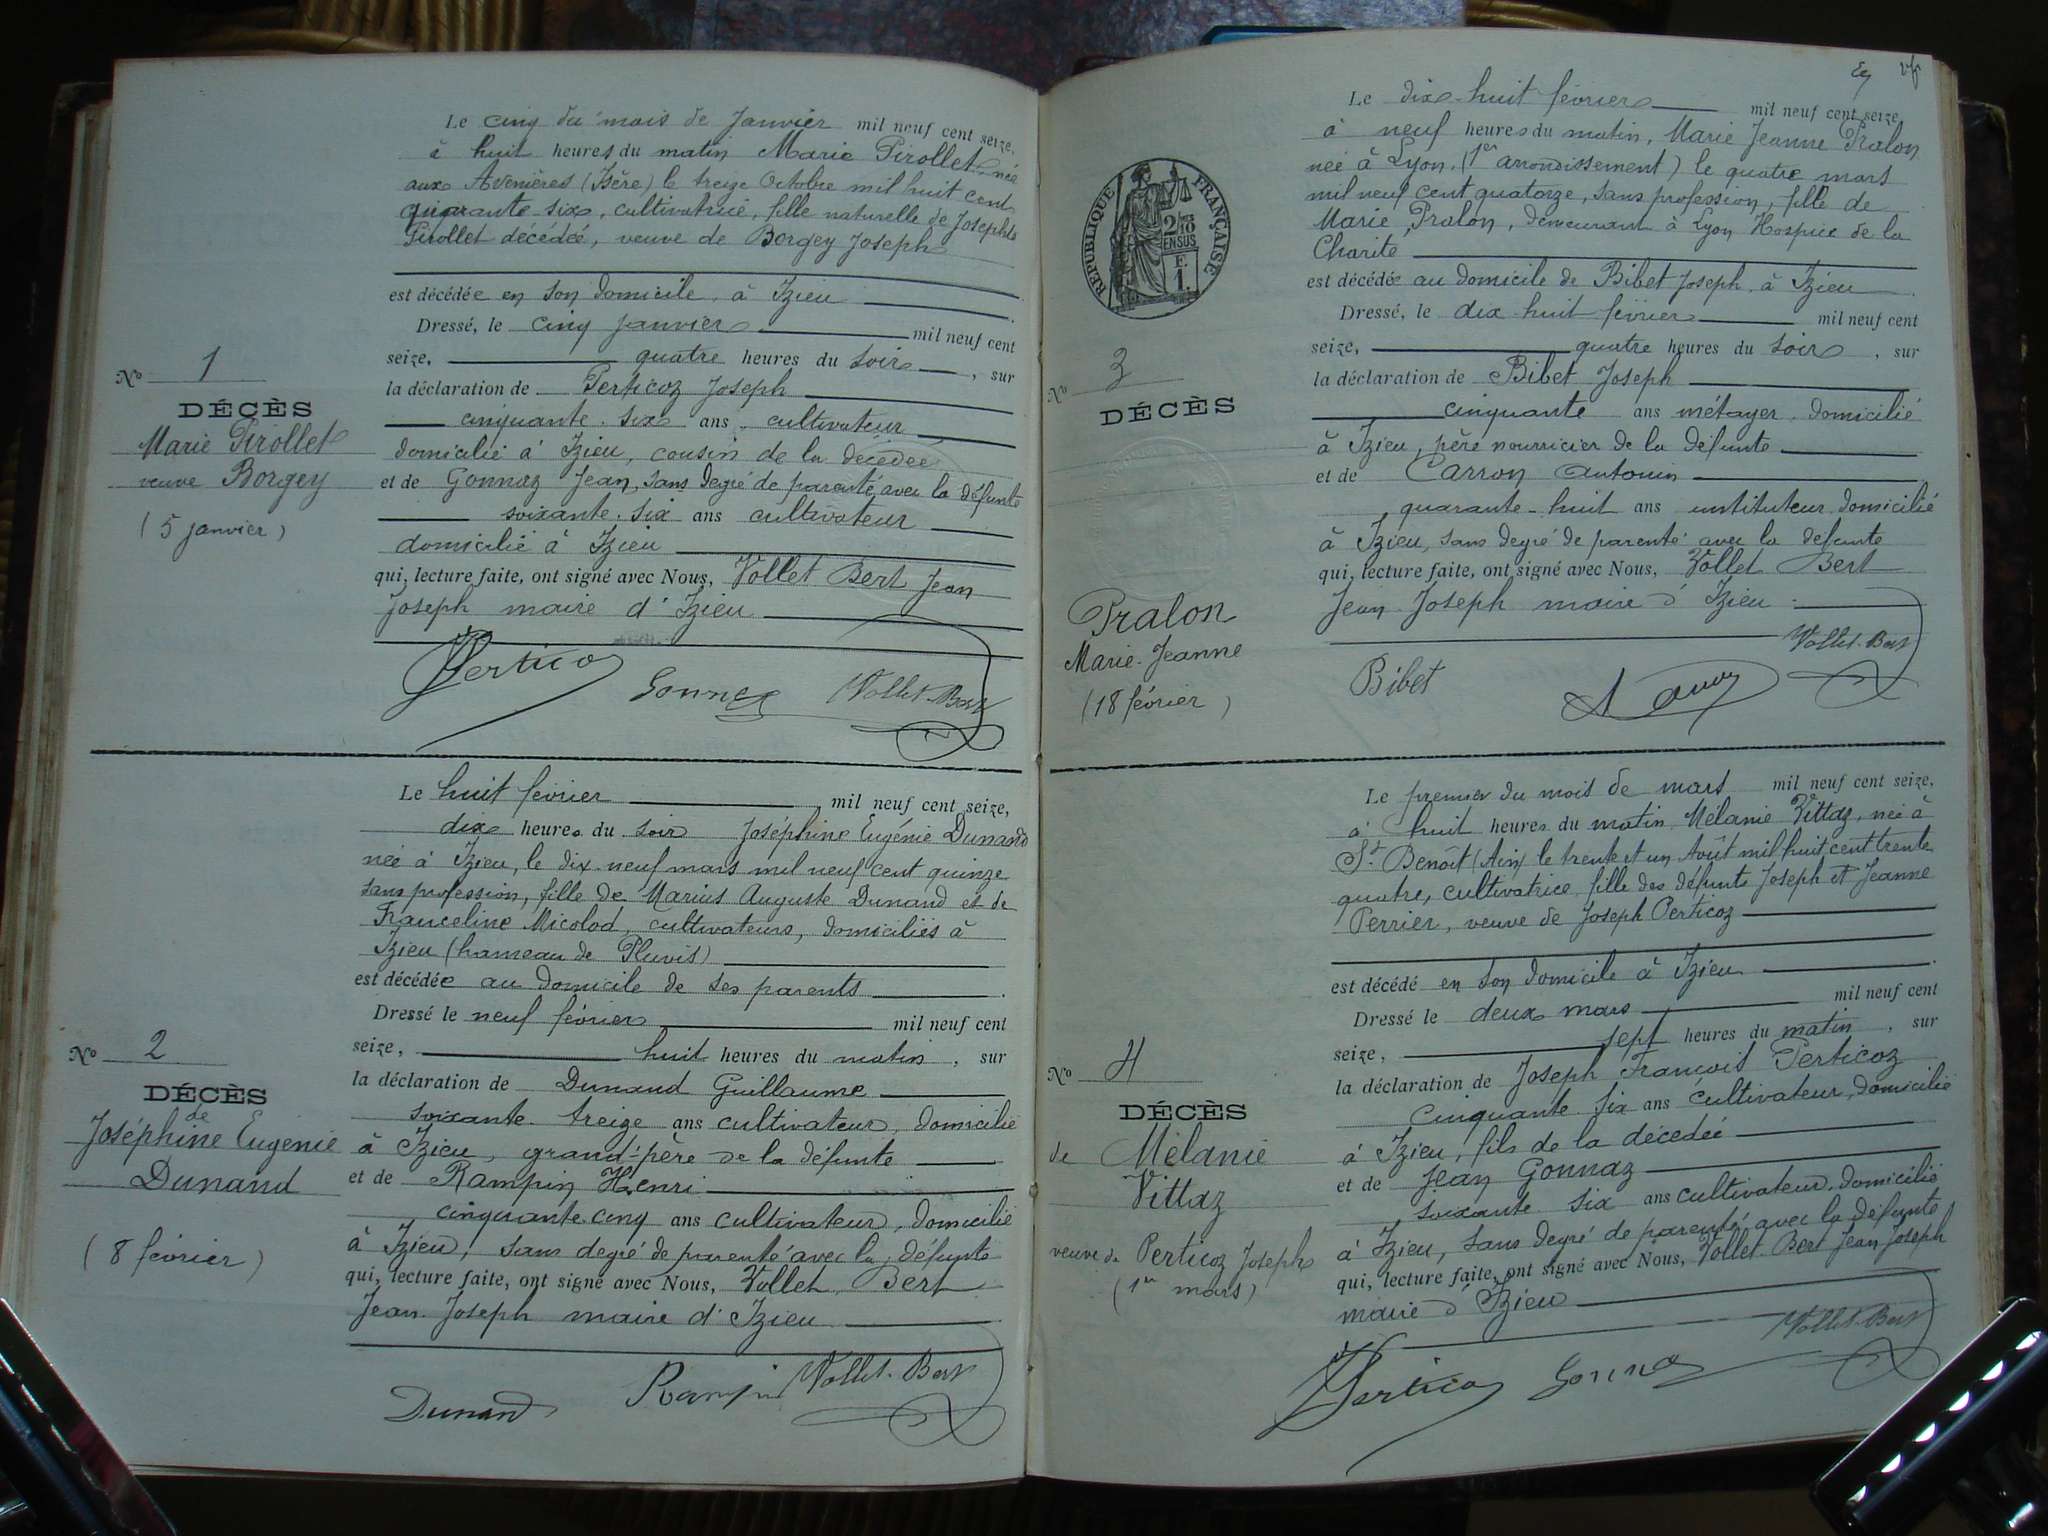 Le cinq du mois de Janvier mil neuf cent seize,
à huit heures du matin Marie Pirollet née
aux Avenières (Isère) le treize Octobre mil huit cent
quarante-six, cultivatrice, fille naturelle de Josephte
Pirollet décédée, veuve de Borgey Joseph
est décédée en son domicile, à Izieu
Dressé, le cinq janvier mil neuf cent
seize, quatre heures du soir, sur
la déclaration de Perticoz Joseph
cinquante-six ans cultivateur
domicilié à Izieu, cousin de la décédée
et de Gonnaz Jean, sans degré de parenté avec la défunte
soixante-six ans cultivateur
domicilié à Izieu
qui, lecture faite, ont signé avec Nous, Vollet Bert Jean
Joseph maire d'Izieu
Perticoz Gonnaz Vollet-Bert
No 1
DÉCÈS
Marie Pirollet
veuve Borgey
(5 janvier)
Le huit février mil neuf cent seize,
dix heures du soir Joséphine Eugénie Dunand
née à Izieu, le dix-neuf mars mil neuf cent quinze
sans profession, fille de Marius Auguste Dunand et de
Franceline Micolod, cultivateurs, domiciliés à
Izieu (hameau de Pluvis)
est décédée au domicile de ses parents
Dressé le neuf février mil neuf cent
seize, huit heures du matin, sur
la déclaration de Dunand Guillaume
soixante-treize ans cultivateur, domicilié
à Izieu, grand-père de la défunte
et de Rampin Henri
cinquante-cinq ans cultivateur, domicilié
à Izieu, sans degré de parenté avec la défunte
qui, lecture faite, ont signé avec Nous, Vollet Bert
Jean-Joseph maire d'Izieu
Dunand Rampin Vollet-Bert
No 2
DÉCÈS
de
Joséphine Eugénie
Dunand
(8 février)
Le dix-huit février mil neuf cent seize,
à neuf heures du matin, Marie Jeanne Pralon
née à Lyon, (1er arrondissement) le quatre mars
mil neuf cent quatorze, sans profession, fille de
Marie Pralon, demeurant à Lyon Hospice de la
Charité
est décédée au domicile de Bibet Joseph à Izieu
Dressé, le dix-huit février mil neuf cent
seize, quatre heures du soir, sur
la déclaration de Bibet Joseph
cinquante ans métayer domicilié
à Izieu, père nourricier de la défunte
et de Carron Antonin
quarante-huit ans instituteur domicilié
à Izieu, sans degré de parenté avec la défunte
qui, lecture faite, ont signé avec Nous, Vollet Bert
Jean-Joseph maire d'Izieu
Bibet Vollet-Bert
RÉPUBLIQUE FRANÇAISE
2/10
EN SUS
F.
1.
No 3
DÉCÈS
Pralon
Marie-Jeanne
(18 février)
Le premier du mois de mars mil neuf cent seize,
à huit heures du matin, Mélanie Vittaz, née à
St Benoît (Ain) le trente et un Août mil huit cent trente
quatre, cultivatrice, fille des défunts Joseph et Jeanne
Perrier, veuve de Joseph Perticoz
est décédé en son domicile à Izieu
Dressé le deux mars mil neuf cent
seize, sept heures du matin, sur
la déclaration de Joseph François Perticoz
cinquante six ans cultivateur, domicilié
à Izieu, fils de la décédée
et de Jean Gonnaz
soixante-six ans cultivateur, domicilié
à Izieu, sans degré de parenté avec la défunte
qui, lecture faite, ont signé avec Nous, Vollet Bert Jean Joseph
maire d'Izieu
Perticoz Gonnaz Vollet-Bert
No 4
DÉCÈS
de Mélanie
Vittaz
veuve de Perticoz Joseph
(1er mars)